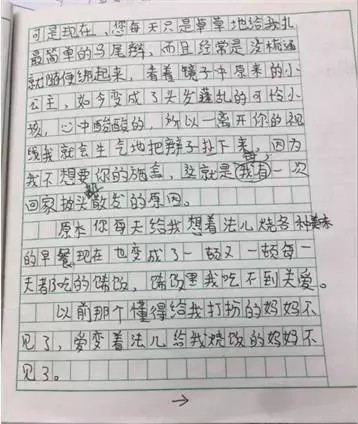 可是现在，您每天只是草草地给我扎
最简单的马尾辫，而且经常是没梳通
就随便绑起来，看着镜子中原来的小
公主，如今变成了头发蓬乱的可怜小
孩，心中酸酸的，所以一离开你的视
线我就会生气地把辫子扯下来，因为
我不想要你的施舍，这就是我每一次
回家披头散发的原因。
原本你每天给我想着法儿烧各种美味
的早餐现在也变成了一顿又一顿每一
天都吃的馄饨，馄饨里我吃不到关爱。
以前那个懂得给我打扮的妈妈不
见了，爱变着法儿给我烧饭的妈妈不
见了。